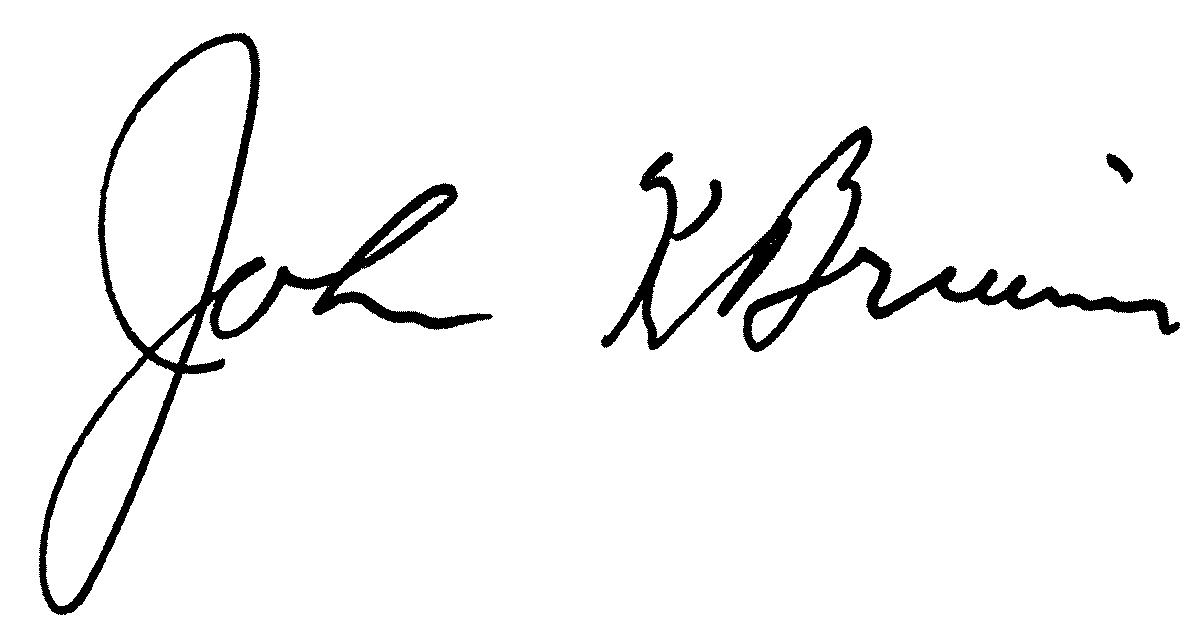 John K Bruinin